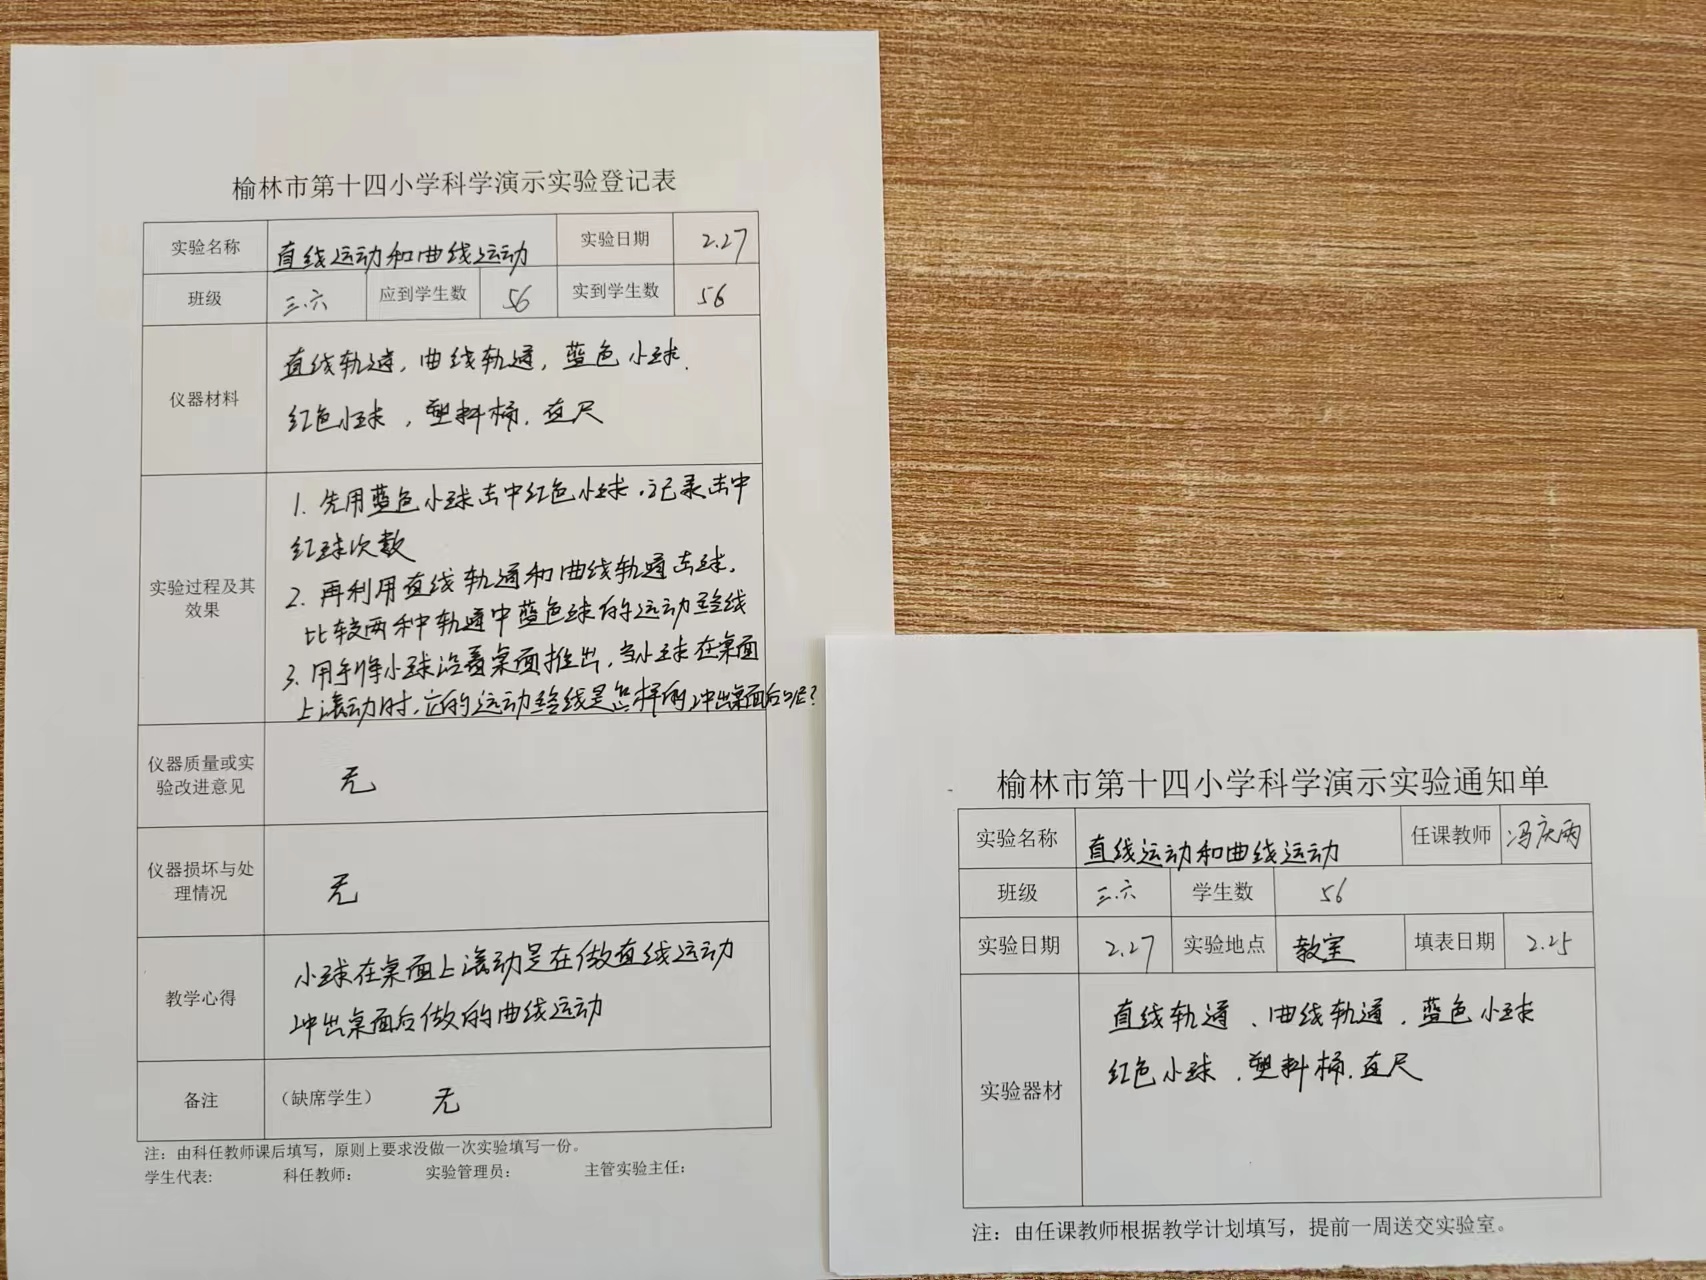 榆林市第十四小学科学演示实验登记表
实验名称 直线运动和曲线运动 实验日期 2.27
班级 三.六 应到学生数 56 实到学生数 56
仪器材料
直线轨道，曲线轨道，蓝色小球.
红色小球，塑料桶.直尺
实验过程及其
效果
1. 先用蓝色小球击中红色小球，记录击中
红球次数
2. 再利用直线轨道和曲线轨道击球，
比较两种轨道中蓝色球的运动路线
3. 用手将小球沿着桌面推出，当小球在桌面
上滚动时，它的运动路线是怎样的冲出桌面后呢？
仪器质量或实
验改进意见
无
仪器损坏与处
理情况
无
教学心得
小球在桌面上滚动是在做直线运动
冲出桌面后做的曲线运动
备注 （缺席学生） 无
注：由科任教师课后填写，原则上要求没做一次实验填写一份。
学生代表： 科任教师： 实验管理员： 主管实验主任：
榆林市第十四小学科学演示实验通知单
实验名称 直线运动和曲线运动 任课教师 冯庆丙
班级 三.六 学生数 56
实验日期 2.27 实验地点 教室 填表日期 2.25
实验器材
直线轨道、曲线轨道，蓝色小球
红色小球，塑料桶.直尺
注：由任课教师根据教学计划填写，提前一周送交实验室。